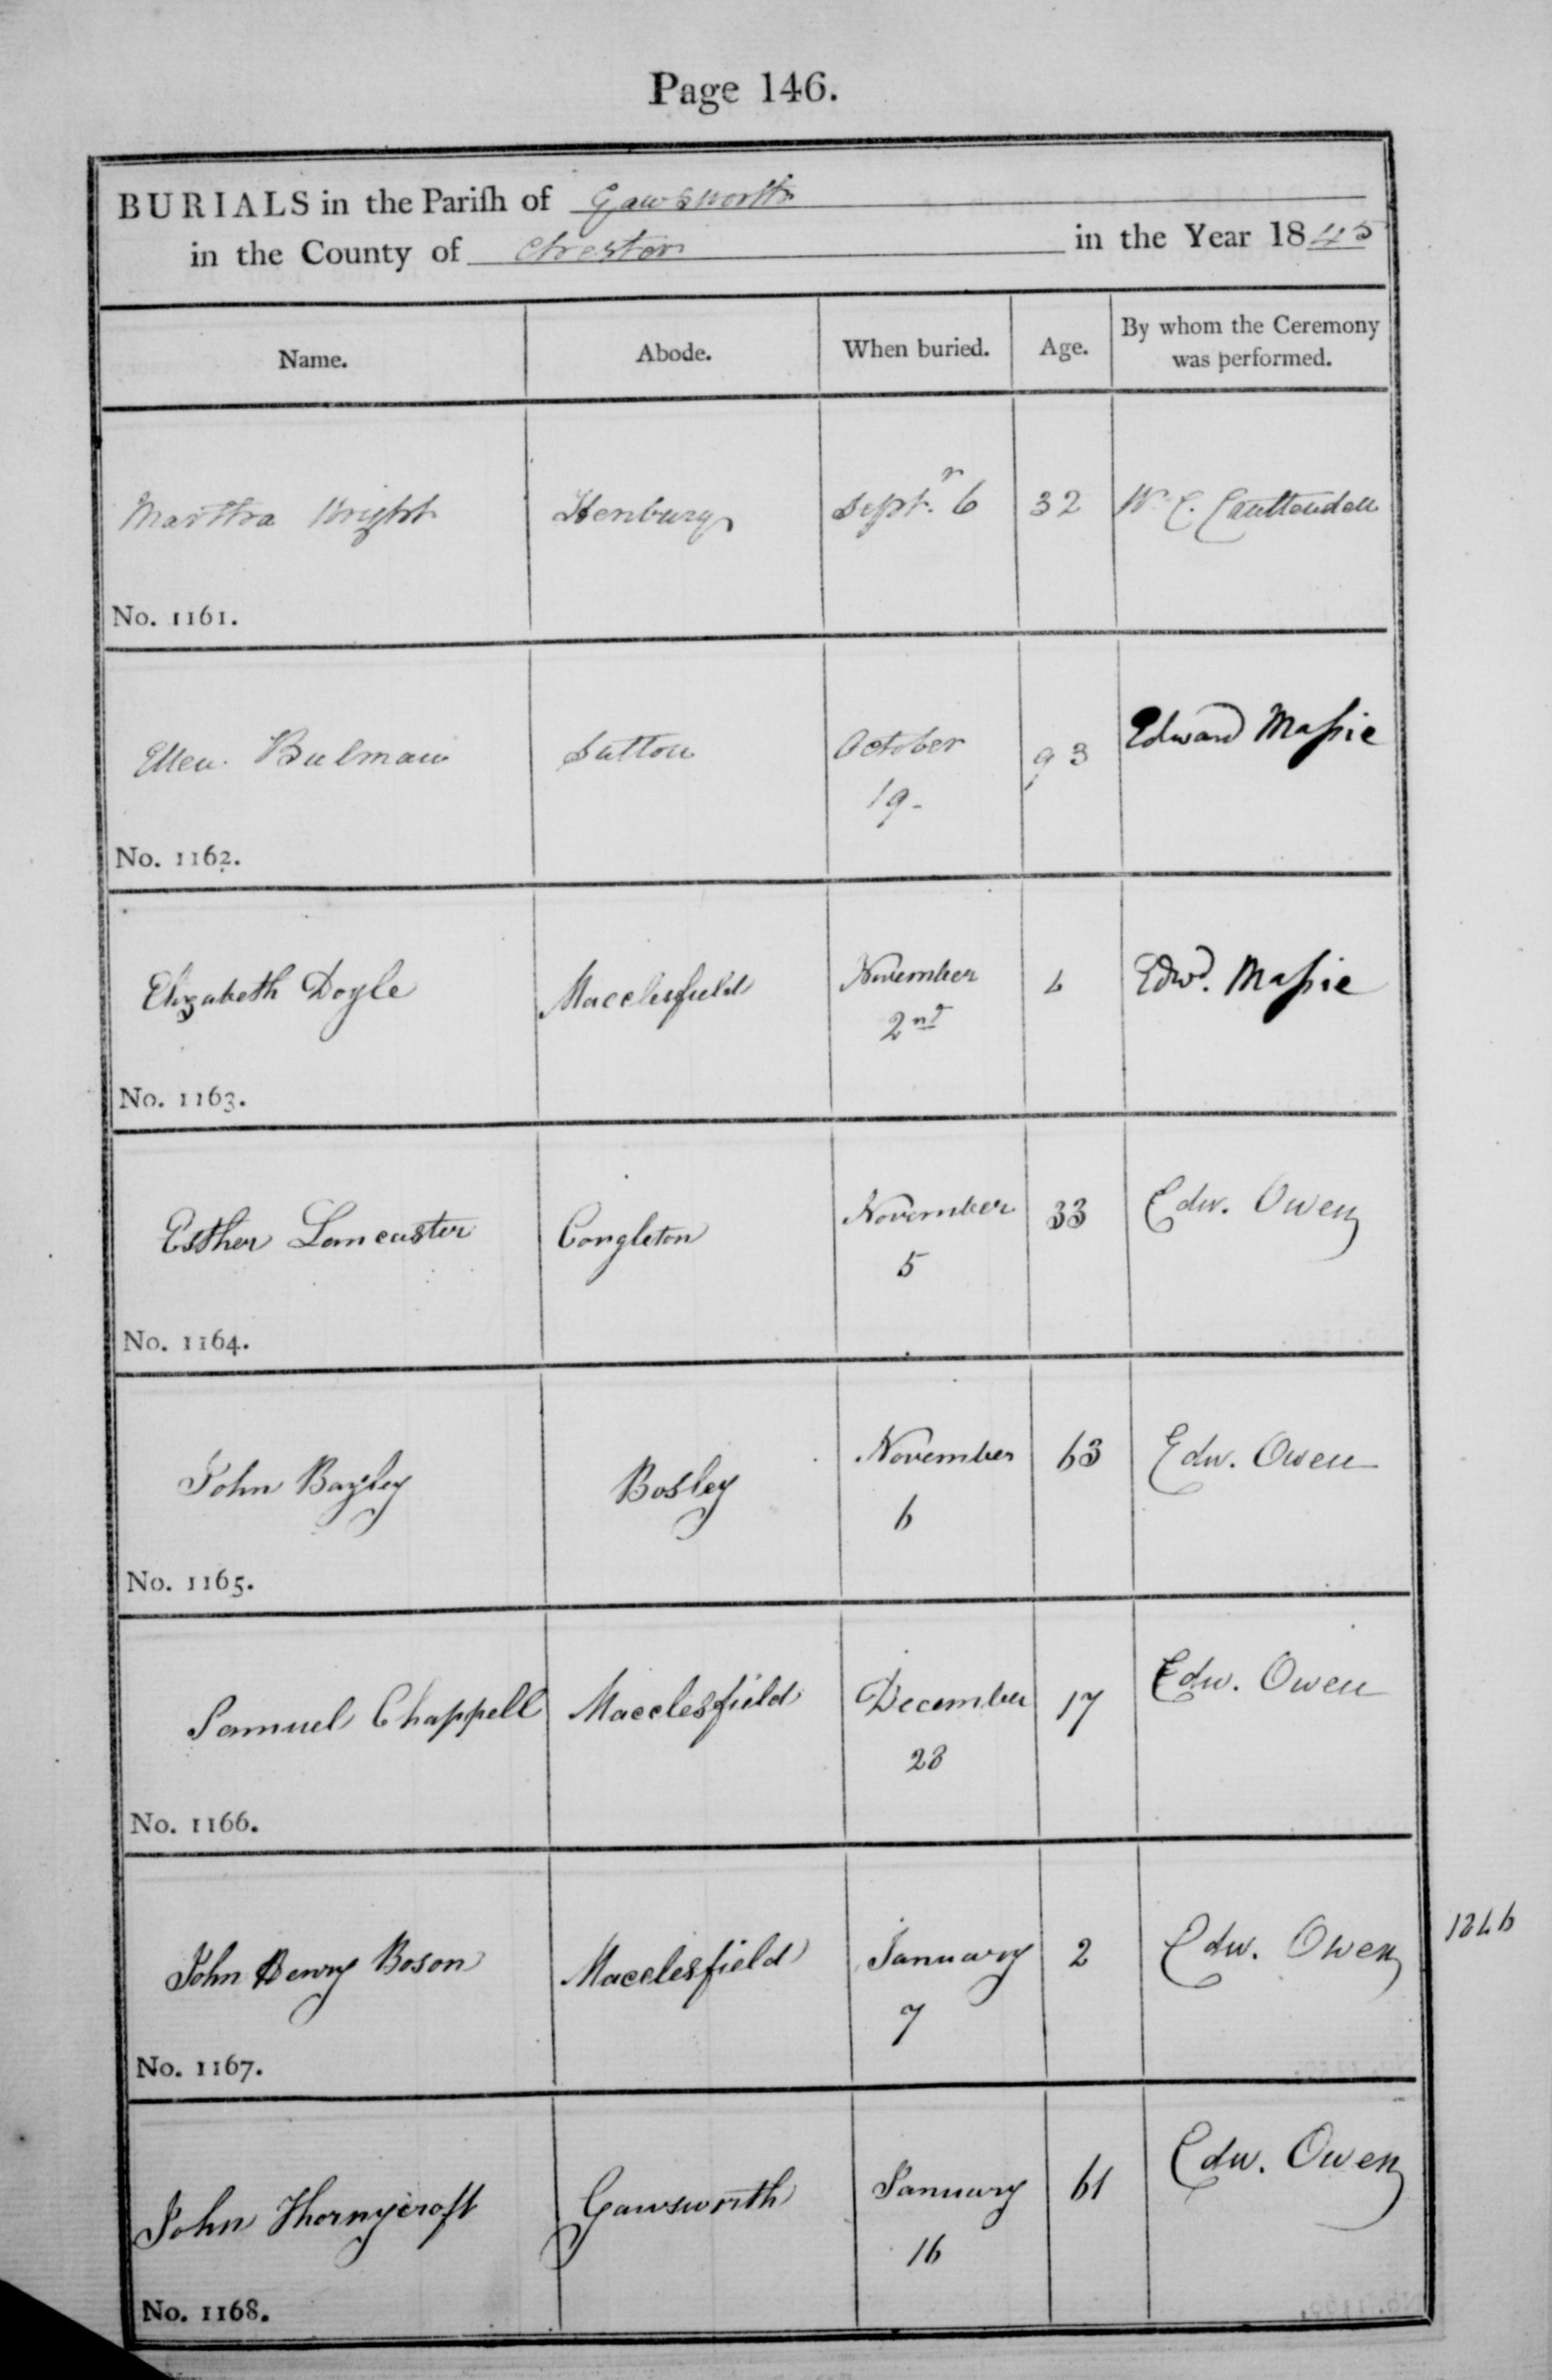 Page 146.
BURIALS in the Pariſh of Gawsworth
in the County of Chester in the Year 1845
Name. Abode. When buried. Age. By whom the Ceremony was performed.
Martha Wright Henbury Septr. 6 32 W. C.
No. 1161.
Ellen Bulman Sutton October 19 - 93 Edward Maſsie
No. 1162.
Elizabeth Doyle Macclesfield November 2nd 4 Edwd. Maſsie
No. 1163.
Esther Lancaster Congleton November 5 33 Edw. Owen
No. 1164.
John Bayley Bosley November 6 63 Edw. Owen
No. 1165.
Samuel Chappell Macclesfield December 28 17 Edw. Owen
No. 1166.
John Henry Boson Macclesfield January 7 2 Edw. Owen 1846
No. 1167.
John Thornycroft Gawsworth January 16 61 Edw. Owen
No. 1168.